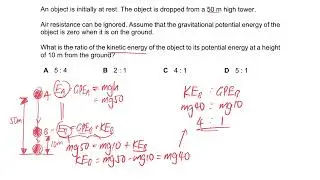 An object is initially at rest. The object is dropped from a 50 m high tower.
Air resistance can be ignored. Assume that the gravitational potential energy of the
object is zero when it is on the ground.
What is the ratio of the kinetic energy of the object to its potential energy at a height
of 10 m from the ground?
A 5 : 4 B 2 : 1 C 4 : 1 D 5 : 1
A EA = GPEA = mgh
= mg50
KEB : GPEB
mg40 : mg10
4 : 1
50m
B EB = GPEB + KEB
10m
mg50 = mg10 + KEB
KEB = mg50 - mg10 = mg40